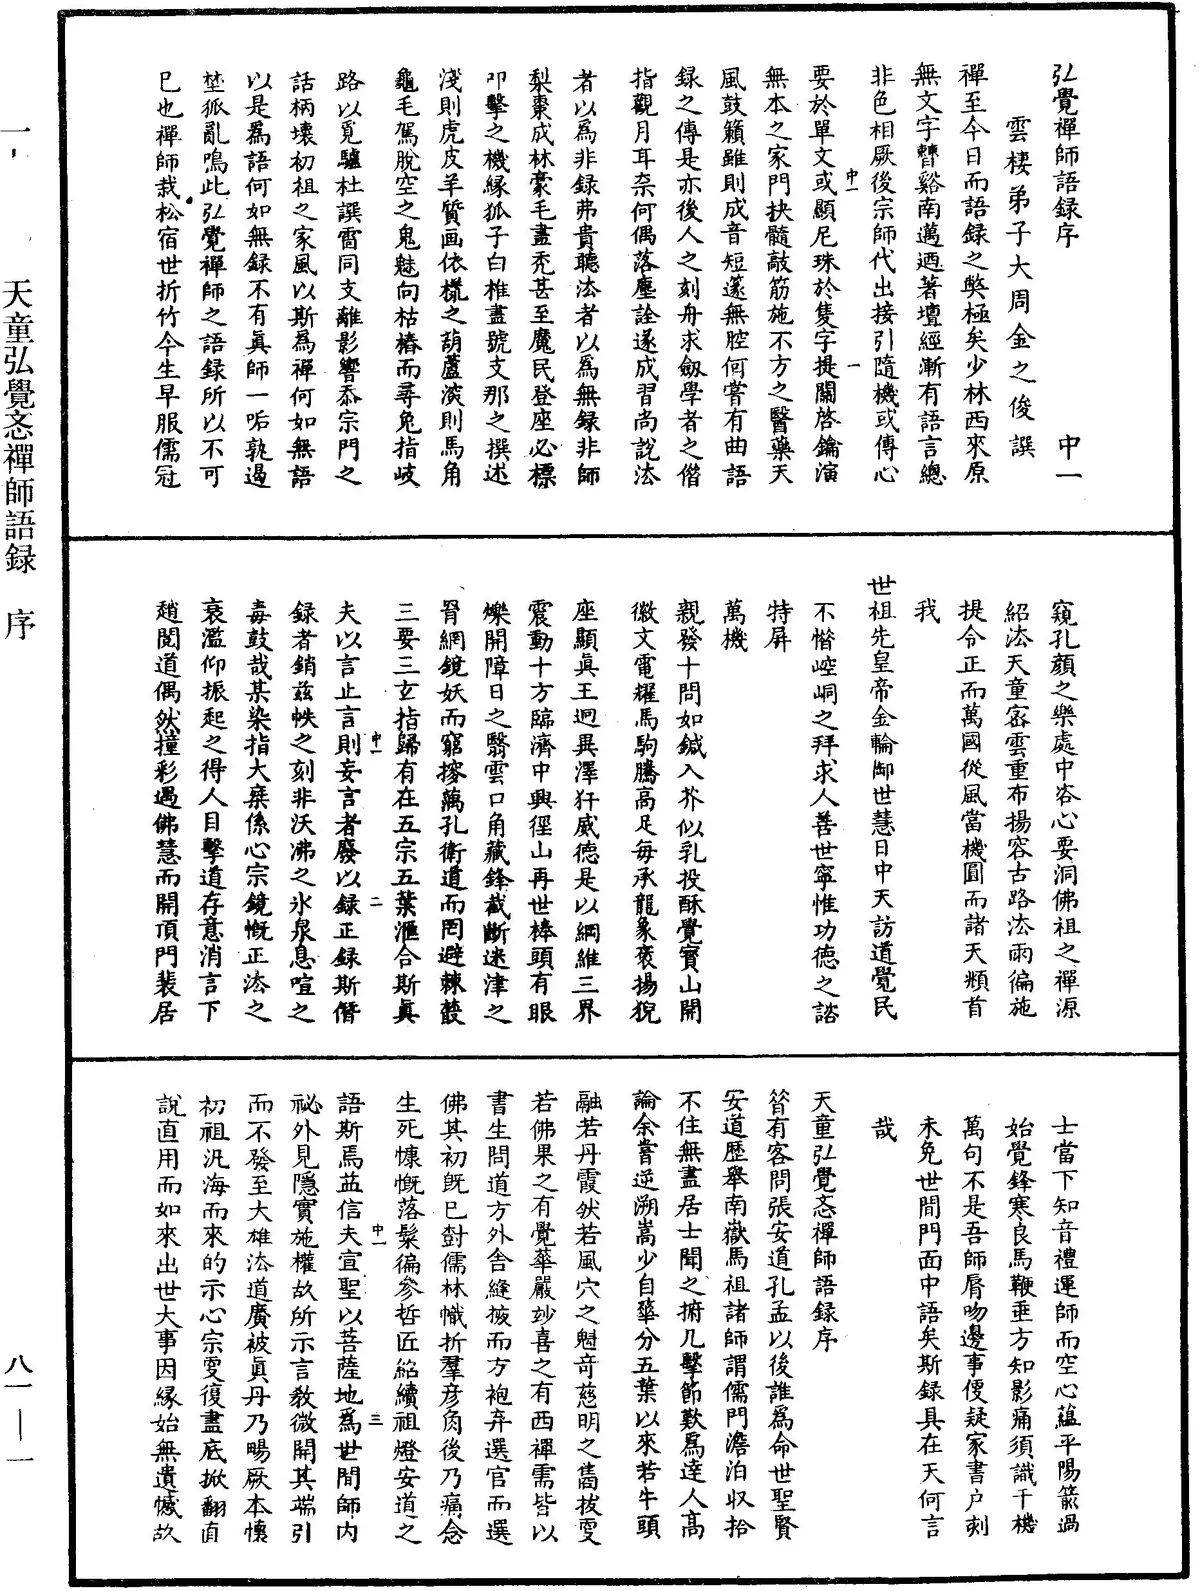 弘覺禪師語録序　中一
雲棲弟子大周金之俊譔
禪至今日而語録之獘極矣少林西來原
無文字瞽谿南邁迺著壇經漸有語言總
非色相厥後宗師代出接引隨機或傳心
要於單文或顯尼珠於隻字提關啓鑰演
無本之家門抉髓敲筋施不方之醫藥天
風鼓籟雖則成音短篴無腔何嘗有曲語
録之傳是亦後人之刻舟求劔學者之偕
指觀月耳奈何偶落塵詮遂成習尚說法
者以爲非録弗貴聽法者以爲無録非師
梨棗成林豪毛盡禿甚至魔民登座必標
叩擊之機緣狐子白椎盡號支那之撰述
淺則虎皮羊質画依㨪之葫蘆淡則馬角
龜毛駕脫空之鬼魅向枯樁而尋兔指岐
路以覓驢杜譔雷同支離影響忝宗門之
話柄壞初祖之家風以斯爲禪何如無語
以是爲語何如無録不有眞師一垢孰遏
埜狐亂鳴此弘覺禪師之語録所以不可
已也禪師栽松宿世折竹今生早服儒冠
窺孔顔之樂處中咨心要洞佛祖之禪源
紹法天童密雲重布揚容古路法雨徧施
提令正而萬國從風當機圓而諸天頫首
我
世祖先皇帝金輪御世慧日中天訪道覺民
不憯崆峒之拜求人善世寧惟功德之諮
特屏
萬機
親發十問如鍼入芥似乳投酥覺寳山開
徽文電耀馬駒騰高足每承龍象褒揚猊
座顯眞王迥異澤犴威德是以綱維三界
震動十方臨濟中興徑山再世棒頭有眼
爍開障日之翳雲口角藏鋒截斷迷津之
罥網鏡妖而窮搜萬孔衛道而罔避棘叢
三要三玄指歸有在五宗五葉滙合斯眞
夫以言止言則妄言者廢以録正録斯僭
録者銷兹帙之刻非沃沸之氷泉息喧之
毒鼓哉某染指大乘係心宗鏡慨正法之
衰濫仰振起之得人目擊道存意消言下
趙閱道偶然撞彩遇佛慧而開頂門裴居
士當下知音禮運師而空心蘊平陽箭過
始覺鋒寒良馬鞭垂方知影痛須識千機
萬句不是吾師脣吻邊事便疑家書户刻
未免世間門面中語矣斯録具在天何言
哉
天童弘覺忞禪師語録序
昝有客問張安道孔孟以後誰爲命世聖賢
安道歷舉南嶽馬祖諸師謂儒門澹泊収拾
不住無盡居士聞之撫几擊節歎爲達人高
論余嘗逆溯嵩少自蕐分五葉以來若牛頭
融若丹霞然若風穴之魁竒慈明之雋拔雯
若佛果之有覺蕐嚴妙喜之有西禪需皆以
書生問道方外舍縫掖而方袍弃選官而選
佛其初旣已尌儒林幟折羣彦角後乃痛念
生死慷慨落髮徧參哲匠紹續祖燈安道之
語斯焉益信夫宣聖以菩薩地爲世間師内
祕外見隱實施權故所示言敎微開其端引
而不發至大雄法道廣被眞丹乃暘厥本懷
初祖汎海而來的示心宗雯復盡底掀翻直
說直用而如來出世大事因緣始無遺憾故
中一　一
中一　二
中一　三
一
天童弘覺忞禪師語録　序
八一—一